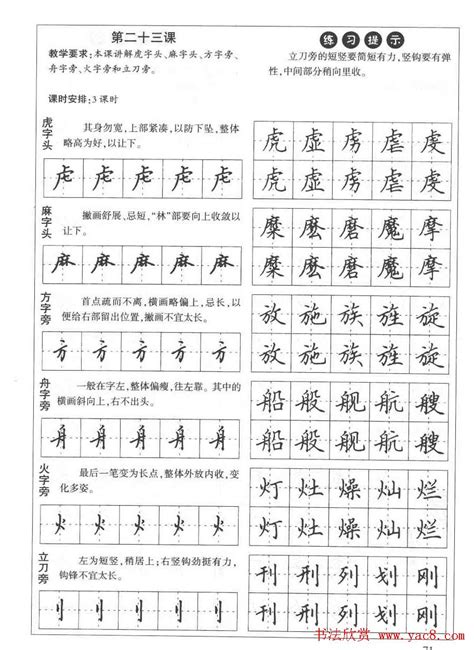 第二十三课
教学要求:本课讲解虎字头、麻字头、方字旁、
舟字旁、火字旁和立刀旁。
课时安排:3课时
练习提示
立刀旁的短竖要简短有力,竖钩要有弹
性,中间部分稍向里收。
虎字头
其身勿宽,上部紧凑,以防下坠,整体
略高为好,以让下。
虍 虍 虍 虍 虍
虎 虚 虏 虐 虔
虎 虚 虏 虐 虔
麻字头
撇画舒展、忌短,“林”部要向上收敛以
让下。
麻 麻 麻 麻 麻
糜 麽 磨 魔 摩
糜 麽 磨 魔 摩
方字旁
首点疏而不离,横画略偏上,忌长,以
便给右部留出位置,撇画不宜太长。
方 方 方 方 方
放 施 族 旌 旋
放 施 族 旌 旋
舟字旁
一般在字左,整体偏瘦,往左靠。其中的
横画斜向上,右不出头。
舟 舟 舟 舟 舟
船 般 舰 航 艘
船 般 舰 航 艘
火字旁
最后一笔变为长点,整体外放内收,变
化多姿。
火 火 火 火 火
灯 灶 燥 灿 烂
灯 灶 燥 灿 烂
立刀旁
左为短竖,稍居上;右竖钩劲挺有力,
钩锋不宜太长。
刂 刂 刂 刂 刂
刊 刑 列 划 刚
刊 刑 列 划 刚
书法欣赏 www.yac8.com
71